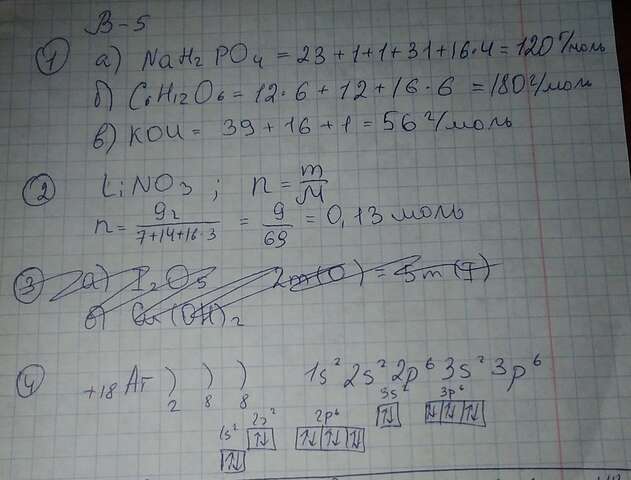 В-5
① а) NaH₂PO₄ = 23+1+1+31+16·4=120 г/моль
б) C₆H₁₂O₆ = 12·6+12+16·6 = 180 г/моль
в) KOH = 39+16+1=56 г/моль
② LiNO₃ ; n = m/M
n = 9г/(7+14+16·3) = 9/69 = 0,13 моль
③ а) I₂O₅ 2m(O) = 5m(I)
(OH)₂
④ +18 Ar ) ) ) 1s² 2s² 2p⁶ 3s² 3p⁶
2 8 8
1s² 2s² 2p⁶ 3s² 3p⁶
↑↓ ↑↓ ↑↓ ↑↓ ↑↓ ↑↓ ↑↓ ↑↓ ↑↓